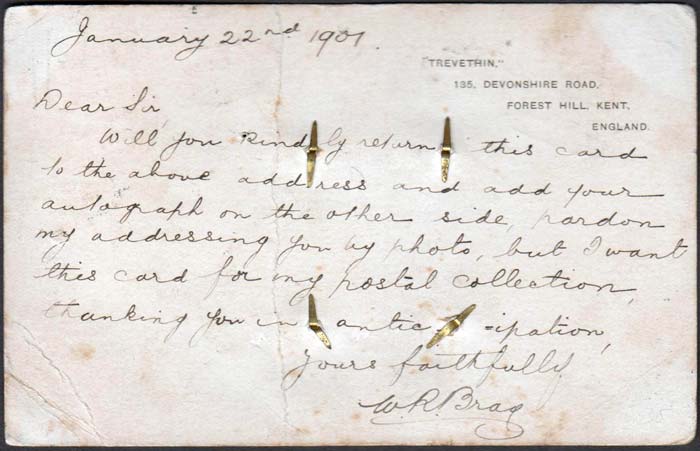 January 22nd 1901.
"TREVETHIN,"
135, DEVONSHIRE ROAD,
FOREST HILL, KENT,
ENGLAND.
Dear Sir,
Will you kindly return this card
to the above address and add your
autograph on the other side, pardon
my addressing you by photo, but I want
this card for my postal collection,
thanking you in antic-ipation,
Yours faithfully
W. R. Brag